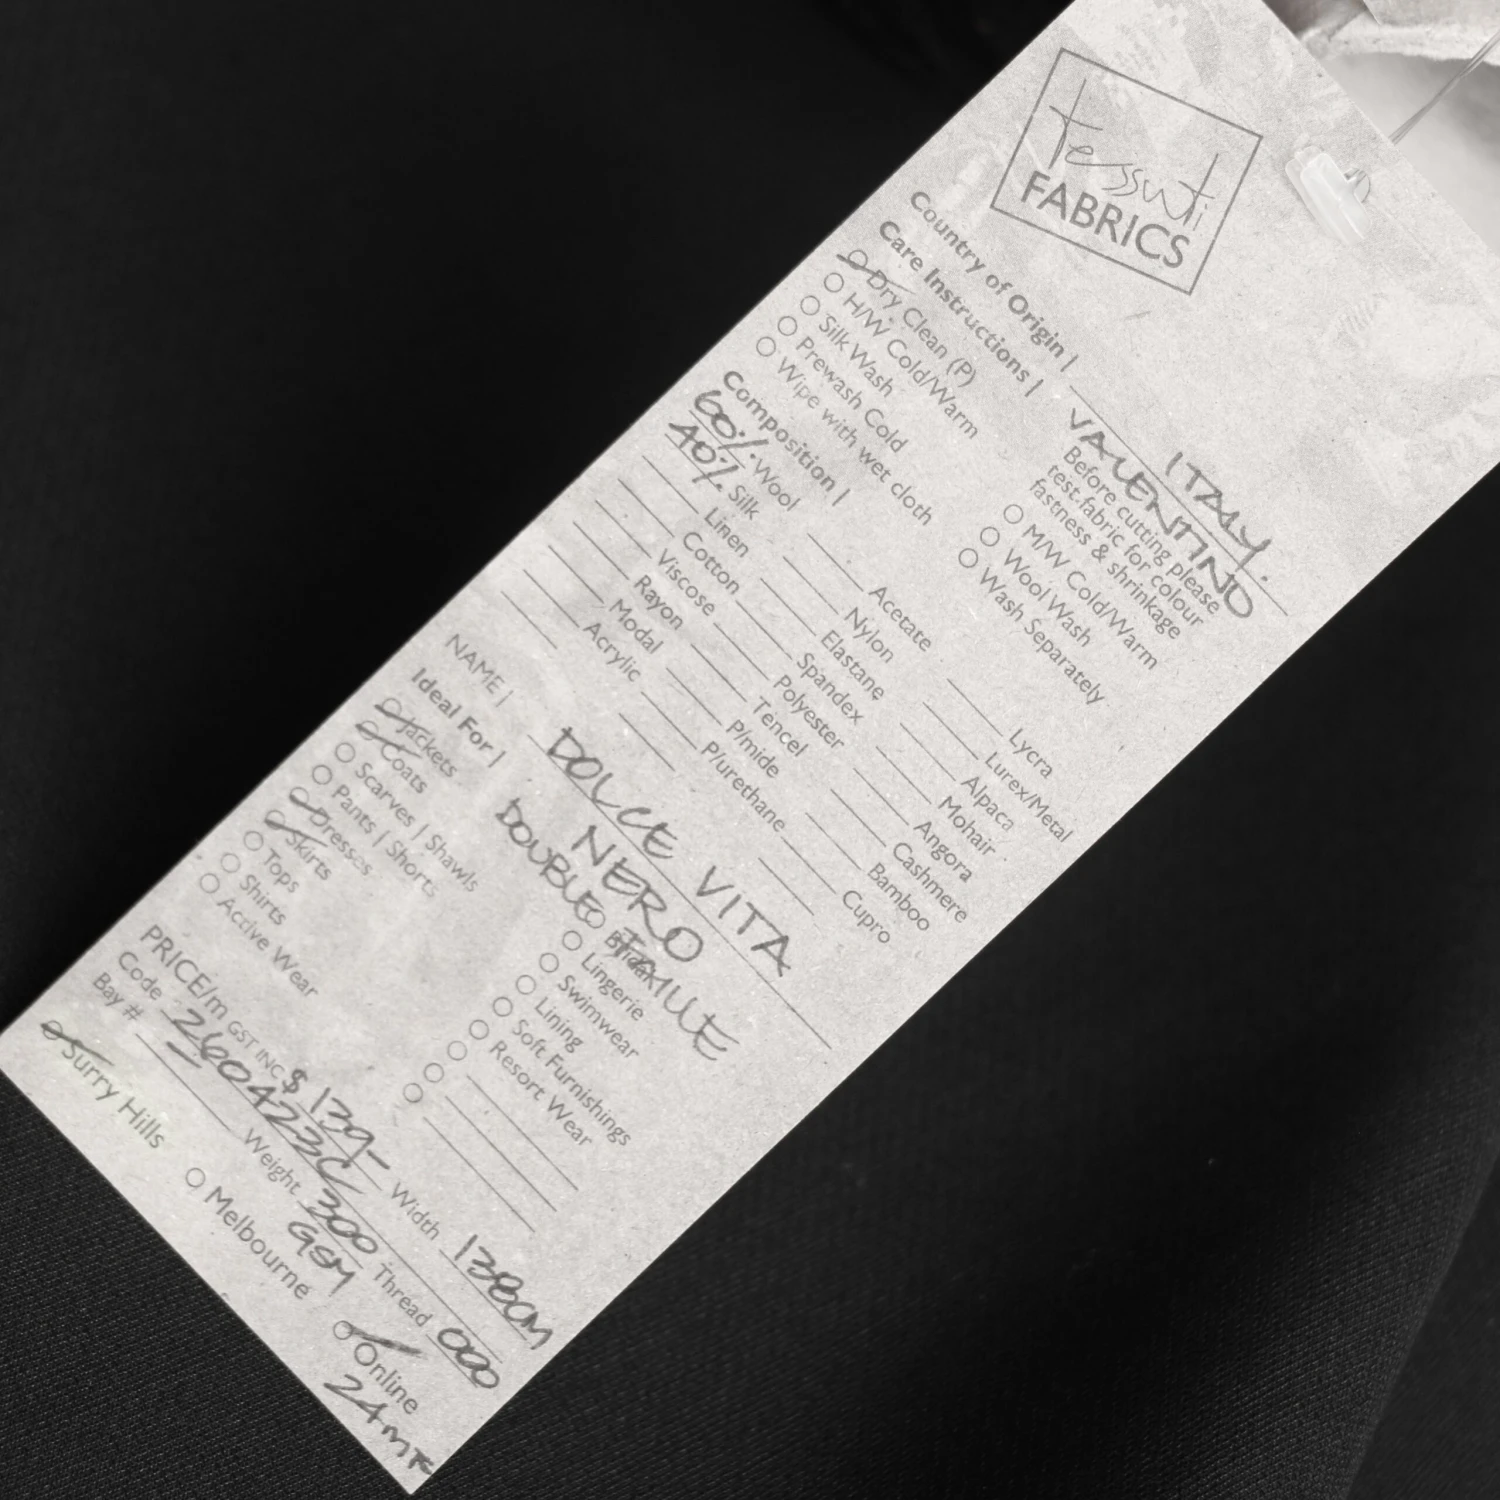 tessuti
FABRICS
Country of Origin | ITALY.
VALENTINO
Care Instructions |
Before cutting please
test fabric for colour
fastness & shrinkage
Dry Clean (P)
H/W Cold/Warm
Silk Wash
Prewash Cold
Wipe with wet cloth
M/W Cold/Warm
Wool Wash
Wash Separately
Composition |
60% Wool
40% Silk
Linen
Cotton
Viscose
Rayon
Modal
Acrylic
Acetate
Nylon
Elastane
Spandex
Polyester
Tencel
P/mide
P/urethane
Lycra
Lurex/Metal
Alpaca
Mohair
Angora
Cashmere
Bamboo
Cupro
NAME | DOLCE VITA
NERO
DOUBLE FAILLE
Ideal For |
Jackets
Coats
Scarves | Shawls
Pants | Shorts
Dresses
Skirts
Tops
Shirts
Active Wear
Bridal
Lingerie
Swimwear
Lining
Soft Furnishings
Resort Wear
PRICE/m GST INC $ 139- Width 138CM
Code 260423C
Bay # Weight 300 GSM Thread 000
Surry Hills Melbourne Online
24mtr